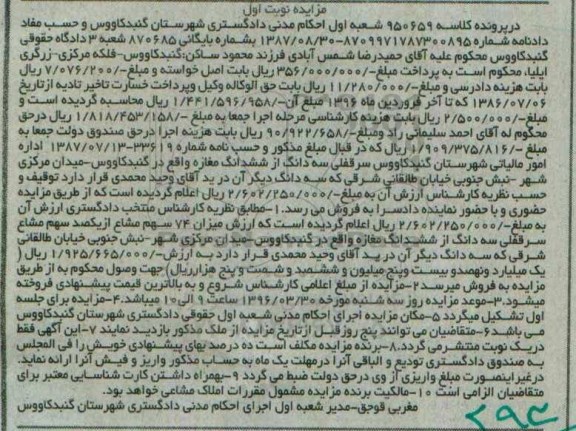 مزایده نوبت اول
درپرونده کلاسه ۹۵۰۶۵۹ شعبه اول احکام مدنی دادگستری شهرستان گنبدکاووس و حسب مفاد
دادنامه شماره ۸۷۰۹۹۷۱۷۸۷۳۰۰۸۹۵-۱۳۸۷/۰۸/۳۰ بشماره بایگانی ۸۷۰۶۸۵ شعبه ۳ دادگاه حقوقی
گنبدکاووس محکوم علیه آقای حمیدرضا شمس آبادی فرزند محمود ساکن:گنبدکاووس-فلکه مرکزی-زرگری
ایلیا، محکوم است به پرداخت مبلغ-/۳۵۶/۰۰۰/۰۰۰ ریال بابت اصل خواسته و مبلغ-/۷/۰۷۶/۲۰۰ ریال
بابت هزینه دادرسی و مبلغ-/۱۱/۲۸۰/۰۰۰ ریال بابت حق الوکاله وکیل وپرداخت خسارت تاخیر تادیه ازتاریخ
۱۳۸۶/۰۷/۰۶ که تا آخر فروردین ماه ۱۳۹۶ مبلغ آن-/۱/۴۴۱/۵۹۶/۹۵۸ ریال محاسبه گردیده است و
مبلغ-/۲/۵۰۰/۰۰۰ ریال بابت هزینه کارشناسی مرحله اجرا جمعا به مبلغ -/۱/۸۱۸/۴۵۳/۱۵۸ ریال درحق
محکوم له آقای احمد سلیمانی راد ومبلغ-/۹۰/۹۲۲/۶۵۸ ریال بابت هزینه اجرا درحق صندوق دولت جمعا به
مبلغ -/۱/۹۰۹/۳۷۵/۸۱۶ ریال که در قبال مبلغ مذکور و حسب نامه شماره ۳۳۶۱۹-۱۳۸۷/۰۷/۱۳ اداره
امور مالیاتی شهرستان گنبدکاووس سرقفلی سه دانگ از ششدانگ مغازه واقع در گنبدکاووس-میدان مرکزی
شهر -نبش جنوبی خیابان طالقانی شرقی که سه دانگ دیگر آن در ید آقای وحید محمدی قرار دارد توقیف و
حسب نظریه کارشناس ارزش آن به مبلغ-/۲/۶۰۲/۲۵۰/۰۰۰ ریال اعلام گردیده است که از طریق مزایده
حضوری و با حضور نماینده دادسرا به فروش می رسد.۱-مطابق نظریه کارشناس منتخب دادگستری ارزش آن
به مبلغ-/۲/۶۰۲/۲۵۰/۰۰۰ ریال اعلام گردیده است که ارزش میزان ۷۴ سهم مشاع ازیکصد سهم مشاع
سرقفلی سه دانگ از ششدانگ مغازه واقع در گنبدکاووس -میدان مرکزی شهر-نبش جنوبی خیابان طالقانی
شرقی که سه دانگ دیگر آن در ید آقای وحید محمدی قرار دارد به ارزش-/۱/۹۲۵/۶۶۵/۰۰۰ ریال (
یک میلیارد ونهصدو بیست وپنج میلیون و ششصد و شصت و پنج هزارریال) جهت وصول محکوم به از طریق
مزایده به فروش میرسد۲-مزایده از مبلغ اعلامی کارشناس شروع و به بالاترین قیمت پیشنهادی فروخته
میشود.۳-موعد مزایده روز سه شنبه مورخه ۱۳۹۶/۰۳/۳۰ ساعت ۹ الی ۱۰ میباشد.۴-مزایده برای جلسه
اول تشکیل میگردد ۵-مکان مزایده اجرای احکام مدنی شعبه اول حقوقی دادگستری شهرستان گنبدکاووس
می باشد۶-متقاضیان می توانند پنج روز قبل از تاریخ مزایده از ملک مذکور بازدید نمایند ۷-این آگهی فقط
دریک نوبت منتشرمی گردد.۸-برنده مزایده مکلف است ده درصد بهای پیشنهادی خویش را فی المجلس
به صندوق دادگستری تودیع و الباقی آنرا درمهلت یک ماه به حساب مذکور واریز و فیش آنرا ارائه نماید.
درغیر اینصورت مبلغ واریزی از وی درحق دولت ضبط می گردد ۹-بهمراه داشتن کارت شناسایی معتبر برای
متقاضیان الزامی است ۱۰-مالکیت برنده مزایده مشمول مقررات املاک مشاعی خواهد بود.
مغربی قوجق-مدیر شعبه اول اجرای احکام مدنی دادگستری شهرستان گنبدکاووس